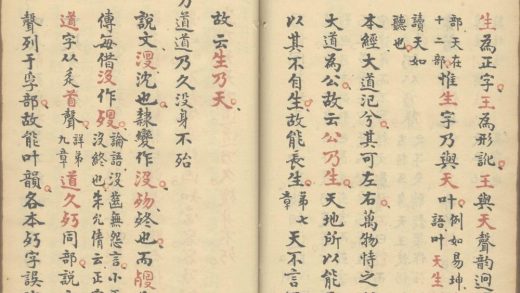 生為正字王為形訛王與天聲韻迥
部天在
十二部
惟生字乃與天叶
例如易坤
語叶天生
讀天如
聽也
本經大道汜今其可左右萬物恃之
大道為公故云公乃生天地所以能
以其不自生故能長生
第七
章
天不言
故云生乃天
乃道道乃久没身不殆
說文沈也隸變作没歾終也而
傳每借没作歿
論語没齒無怨言小
没終也朱允倩云正
道字从辵首聲
詳第
九章
道久歾同部說
聲列于孚部故能叶韻各本歾字誤